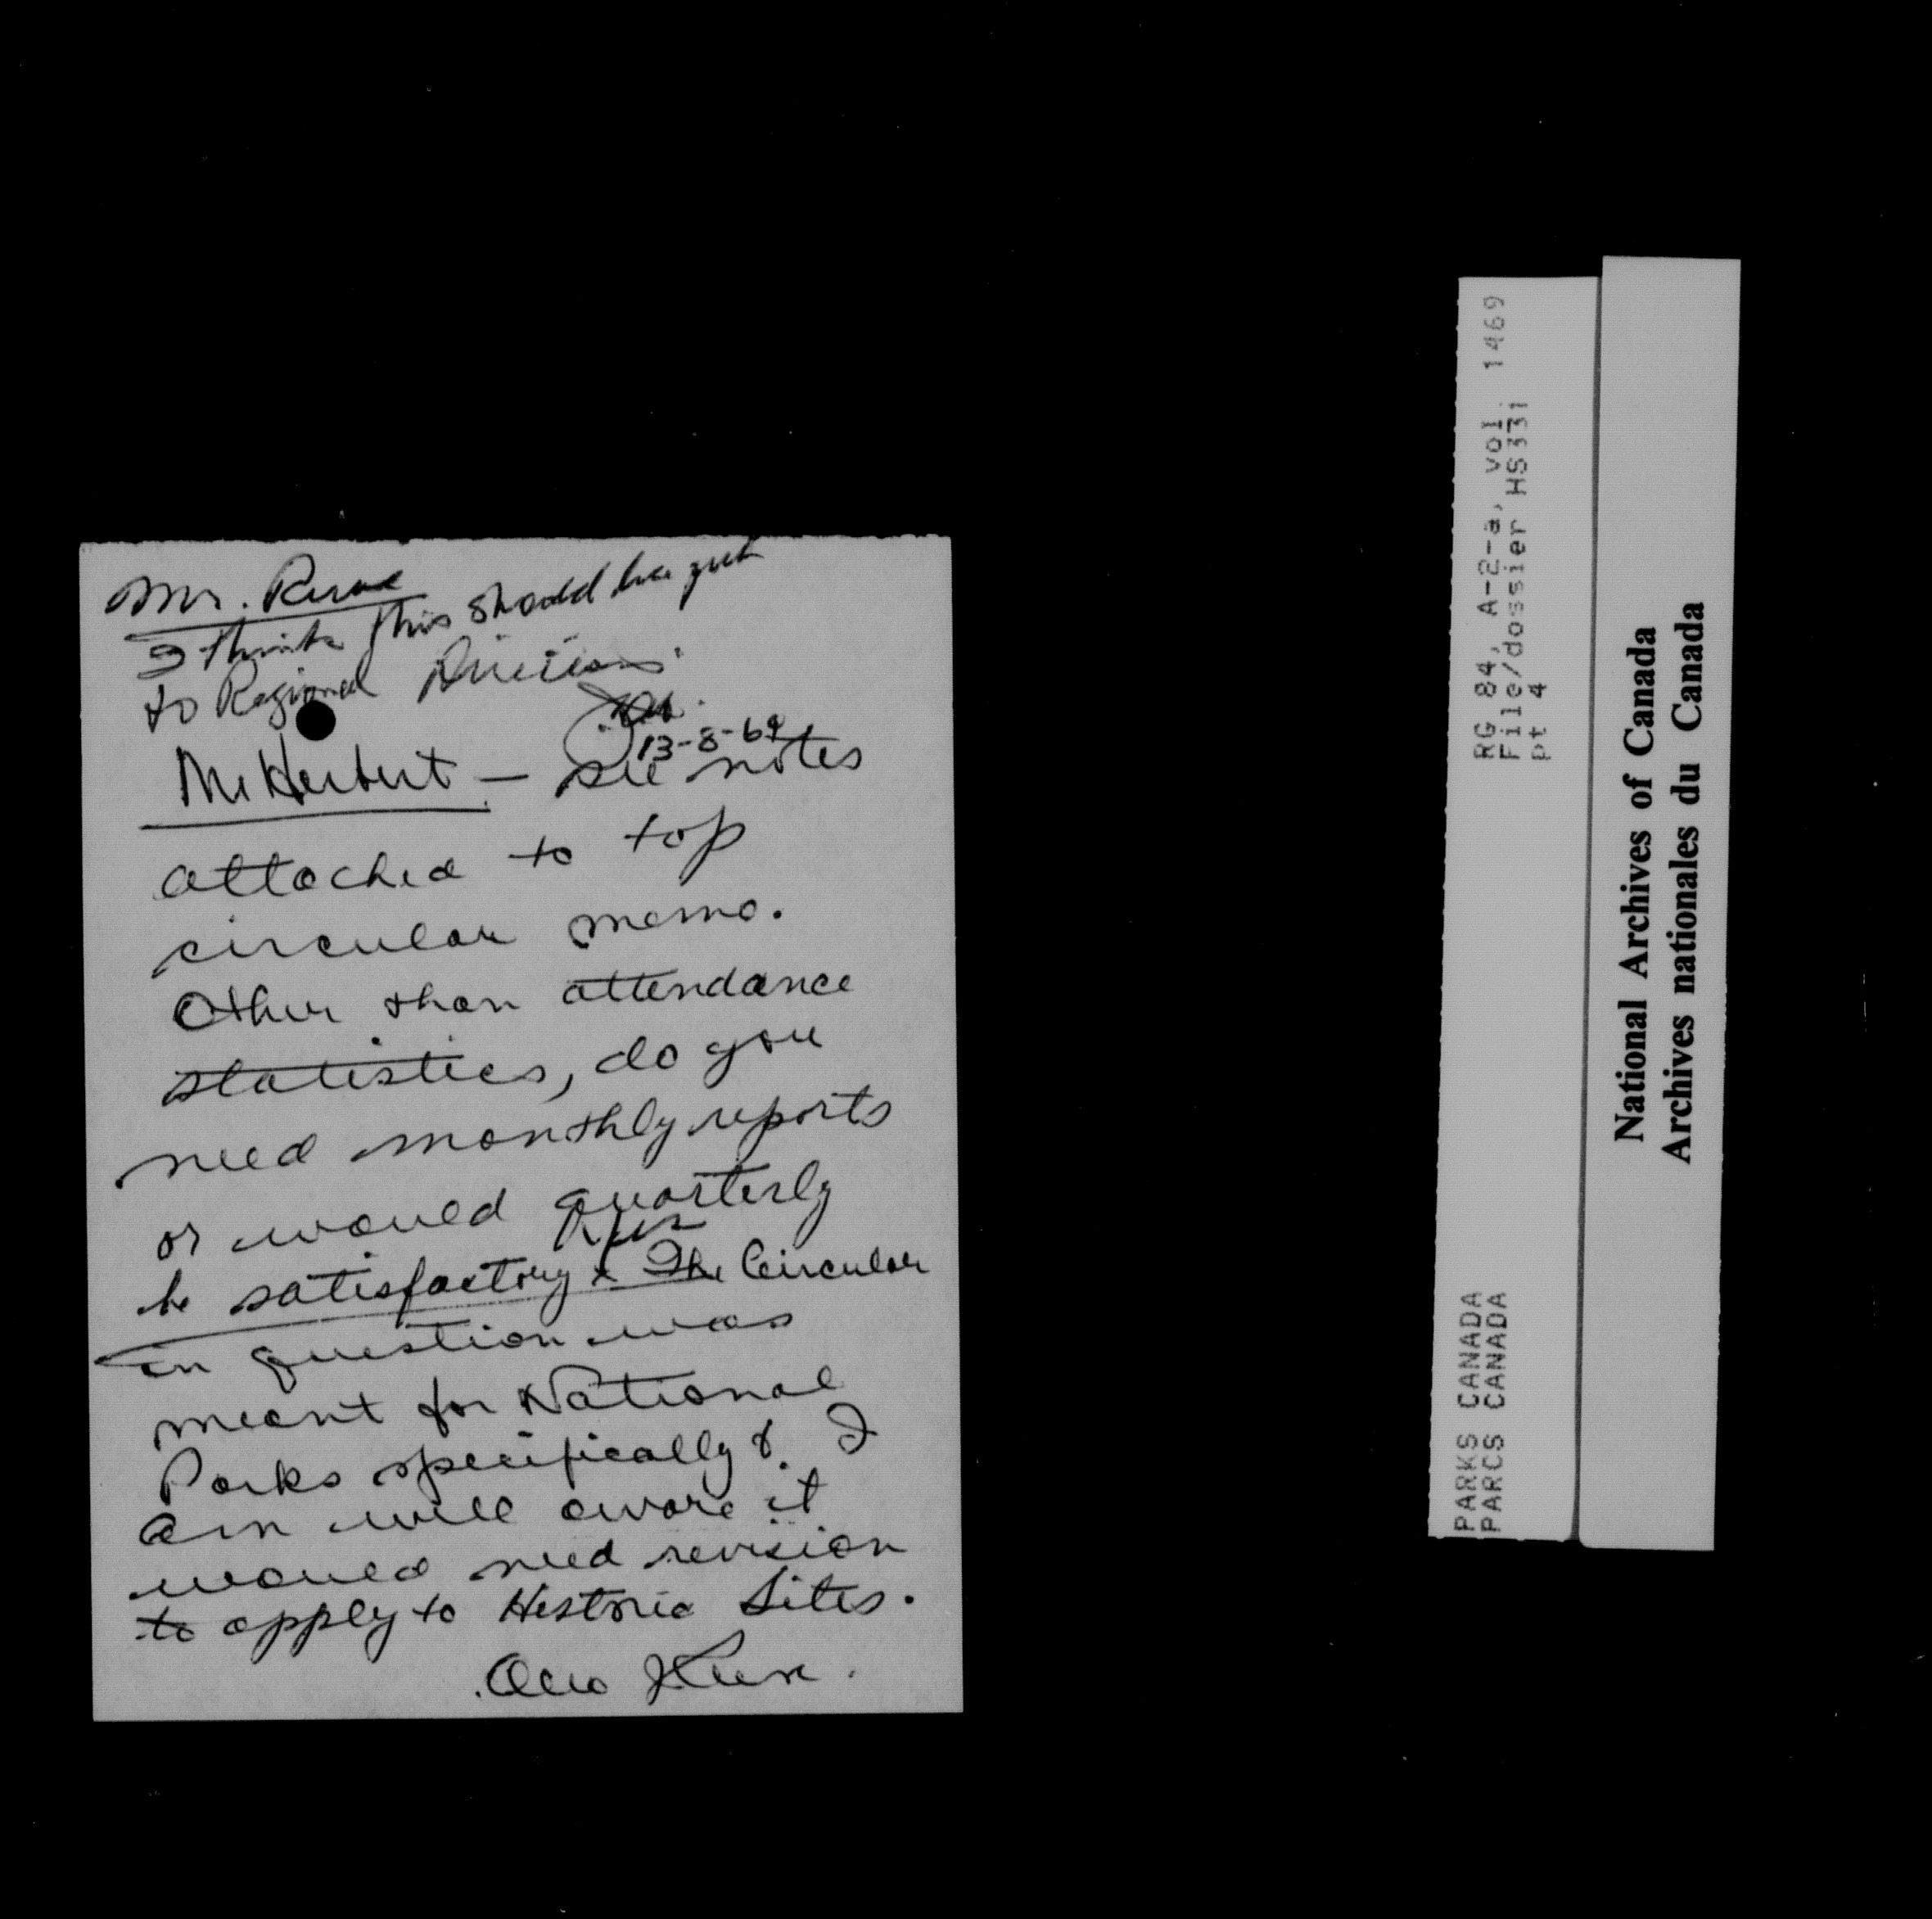 Mr.
I think this should be put
to Regional Directors.
13-8-69
Mr Herbert — see notes
attached to top
circular memo.
Other than attendance
statistics, do you
need monthly reports
or would quarterly
Yes
be satisfactory x The Circular
in question was
meant for National
Parks specifically & I
am well aware it
would need revision
to apply to Historic Sites.
RG 84, A-2-a, vol. 1469
File/dossier HS331
pt 4
PARKS CANADA
PARCS CANADA
National Archives of Canada
Archives nationales du Canada